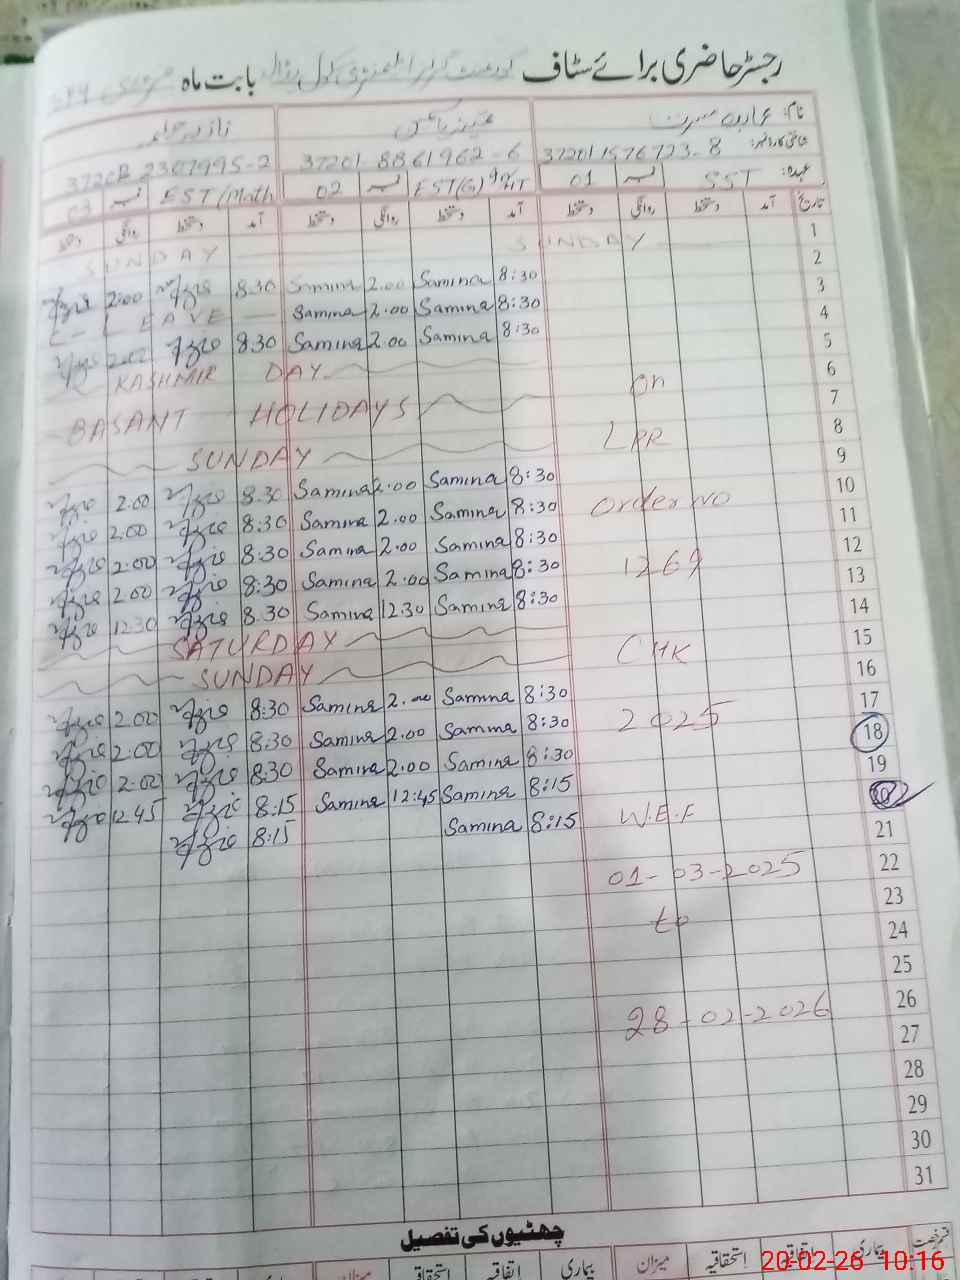 رجسٹر حاضری برائے سٹاف گورنمنٹ گرلز ایلیمنٹری سکول بابت ماہ فروری
نام:
شناختی کارڈ نمبر: 37201 1576723-8 37201-8861962-6 2307995-2
عہدہ: SST نمبر 01 EST(G) نمبر 02 EST (Math نمبر 03
تاریخ آمد دستخط روانگی دستخط آمد دستخط روانگی دستخط آمد دستخط روانگی دستخط
1 SUNDAY SUNDAY
2 8:30 Samina 2.00 Samina 8.30 2:00
3 8:30 Samina 2.00 Samina LEAVE
4 8:30 Samina 2.00 Samina 8.30
5 KASHMIR DAY
6 on BASANT HOLIDAYS
7
8 LPR SUNDAY
9 8:30 Samina 2.00 Samina 8.30 2.00
10 Order NO 8:30 Samina 2.00 Samina 8:30 2.00
11 8:30 Samina 2.00 Samina 8:30 2.00
12 1269 8:30 Samina 2.00 Samina 8:30 2.00
13 8:30 Samina 12.30 Samina 8.30 12.30
14 SATURDAY
15 CHK SUNDAY
16 8:30 Samina 2.00 Samina 8:30 2.00
17 2025 8:30 Samina 2.00 Samina 8:30 2:00
18 8:30 Samina 2.00 Samina 8:30 2.00
19 8:15 Samina 12:45 Samina 8:15 12.45
20 W.E.F 8:15 Samina 8:15
21
22 01-03-2025
23
24 to
25
26
27 28-02-2026
28
29
30
31
چھٹیوں کی تفصیل
رخصت بیماری اتفاقیہ استحقاقیہ میزان بیماری اتفاقیہ استحقاقیہ میزان
20-02-26 10:16